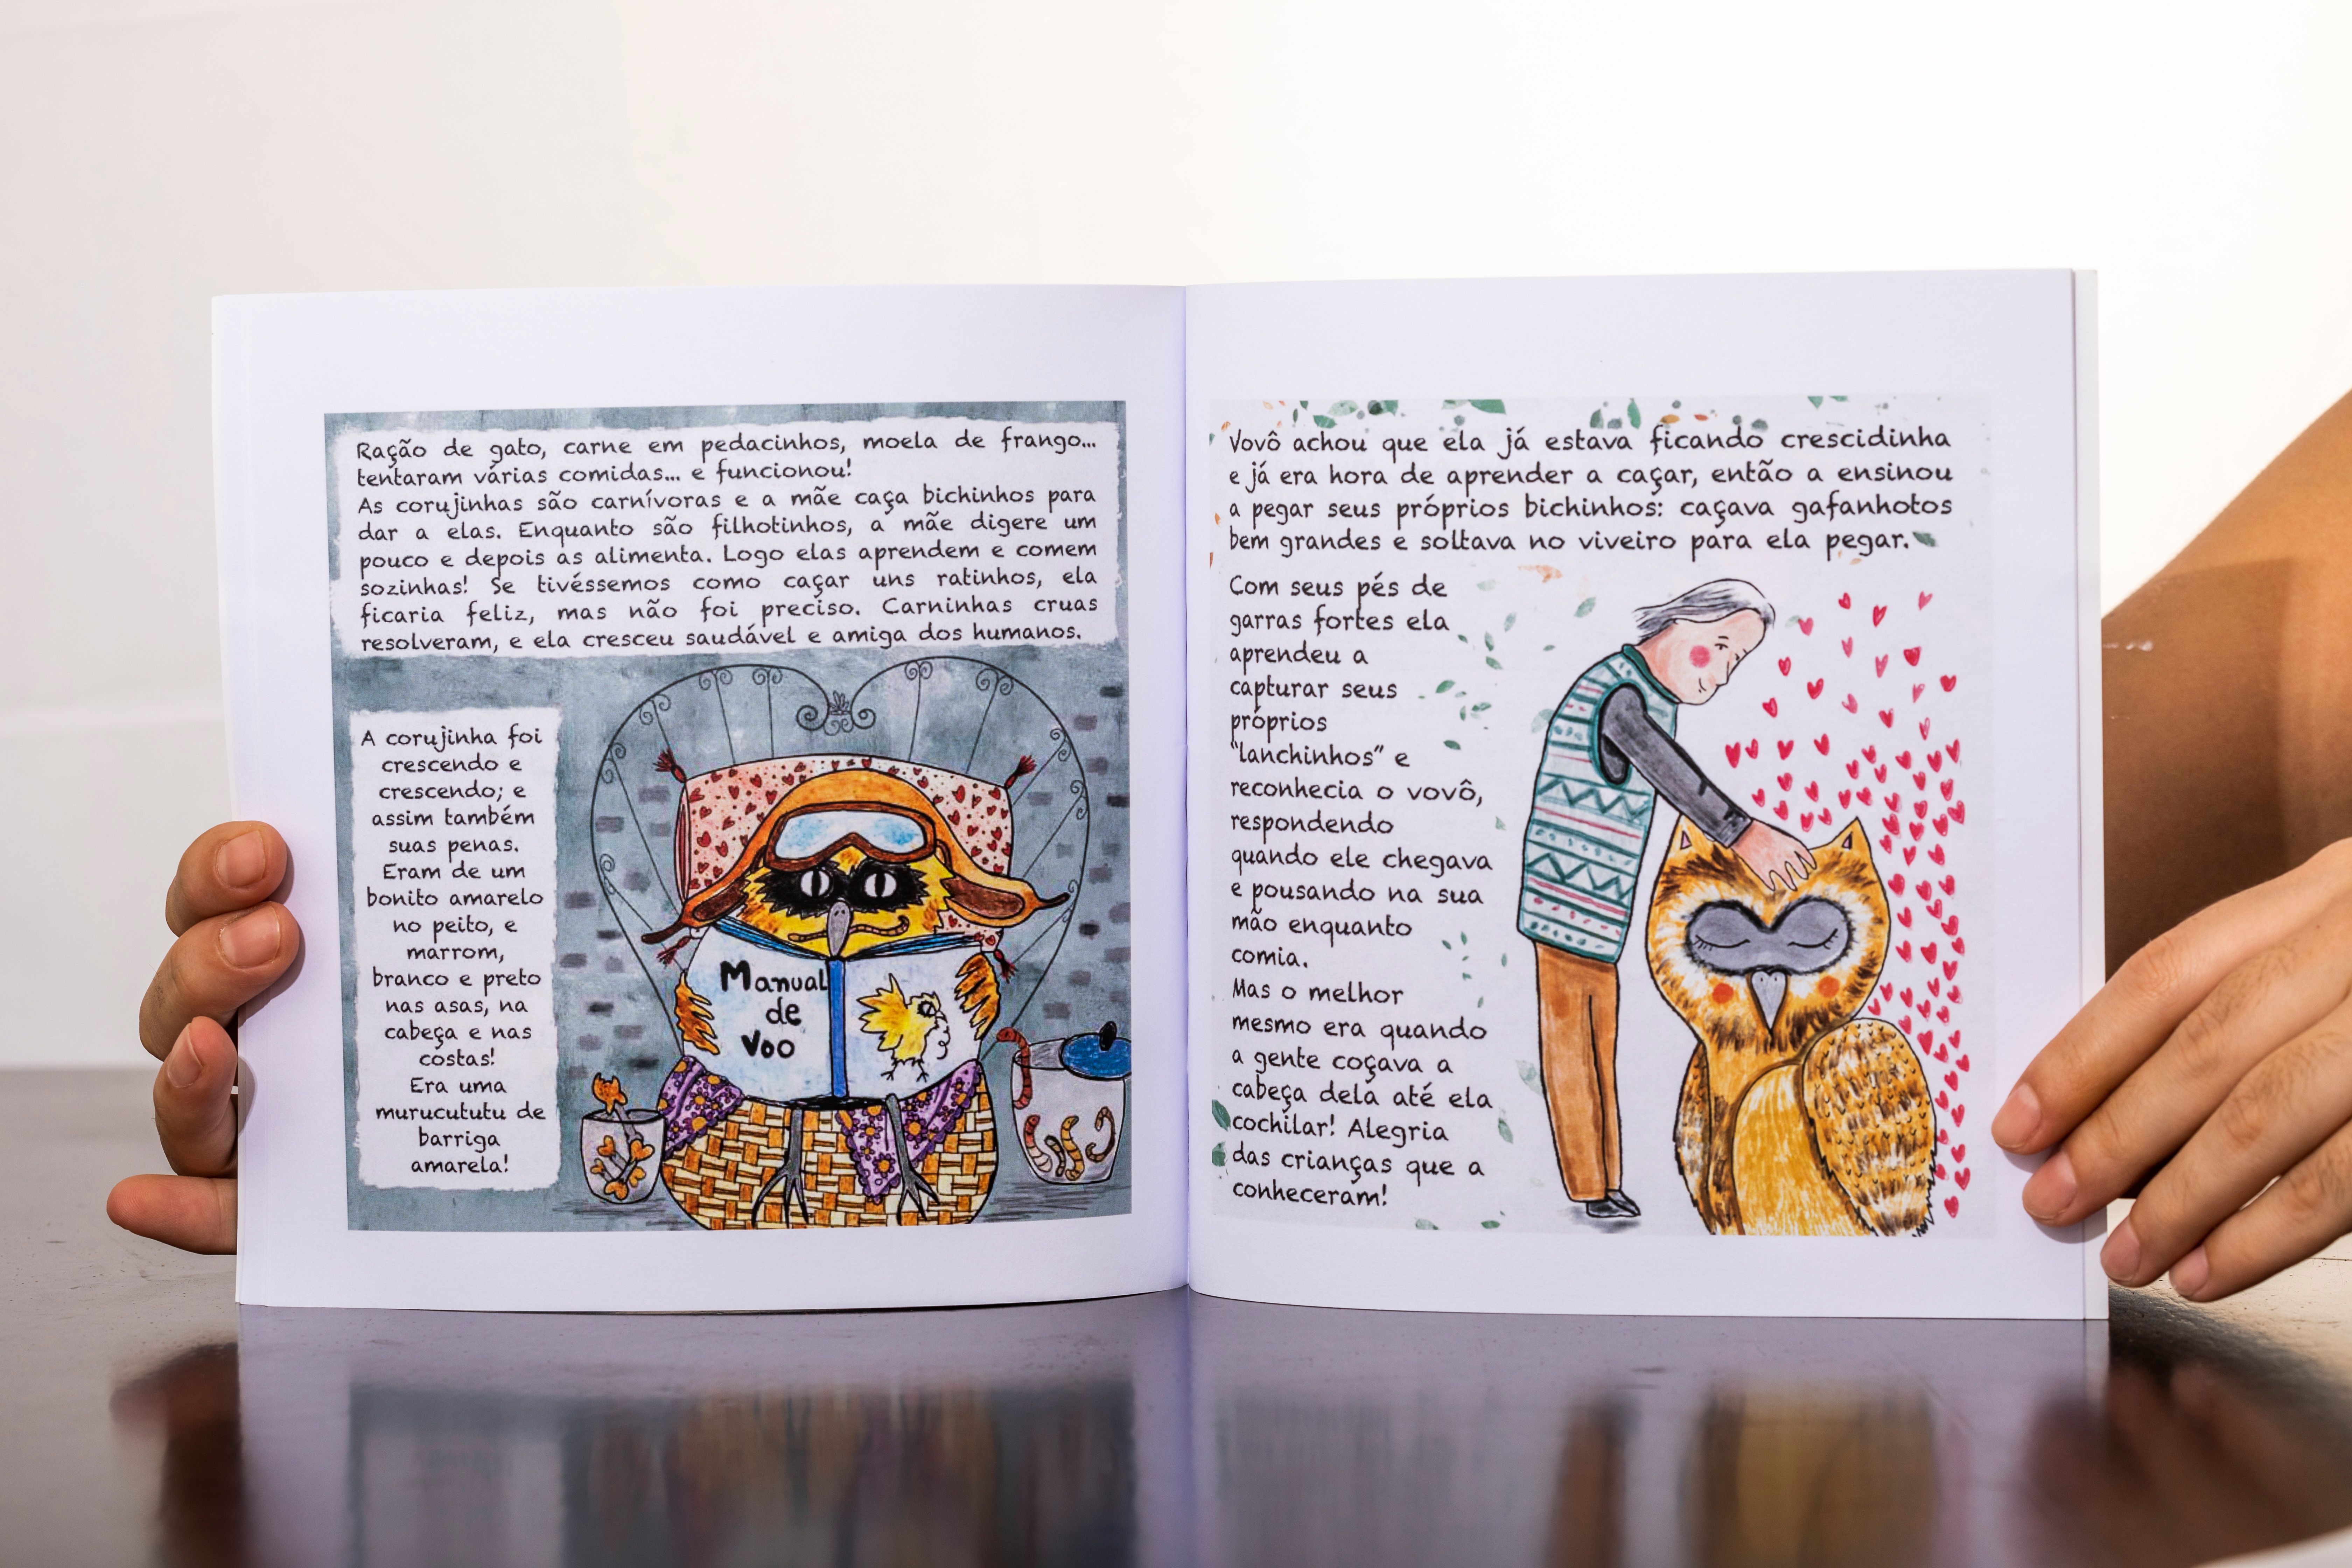 Ração de gato, carne em pedacinhos, moela de frango...
tentaram várias comidas... e funcionou!
As corujinhas são carnívoras e a mãe caça bichinhos para
dar a elas. Enquanto são filhotinhos, a mãe digere um
pouco e depois as alimenta. Logo elas aprendem e comem
sozinhas! Se tivéssemos como caçar uns ratinhos, ela
ficaria feliz, mas não foi preciso. Carninhas cruas
resolveram, e ela cresceu saudável e amiga dos humanos.
A corujinha foi
crescendo e
crescendo; e
assim também
suas penas.
Eram de um
bonito amarelo
no peito, e
marrom,
branco e preto
nas asas, na
cabeça e nas
costas!
Era uma
murucututu de
barriga
amarela!
Manual
de
Voo
Vovô achou que ela já estava ficando crescidinha
e já era hora de aprender a caçar, então a ensinou
a pegar seus próprios bichinhos: caçava gafanhotos
bem grandes e soltava no viveiro para ela pegar.
Com seus pés de
garras fortes ela
aprendeu a
capturar seus
próprios
"lanchinhos" e
reconhecia o vovô,
respondendo
quando ele chegava
e pousando na sua
mão enquanto
comia.
Mas o melhor
mesmo era quando
a gente coçava a
cabeça dela até ela
cochilar! Alegria
das crianças que a
conheceram!